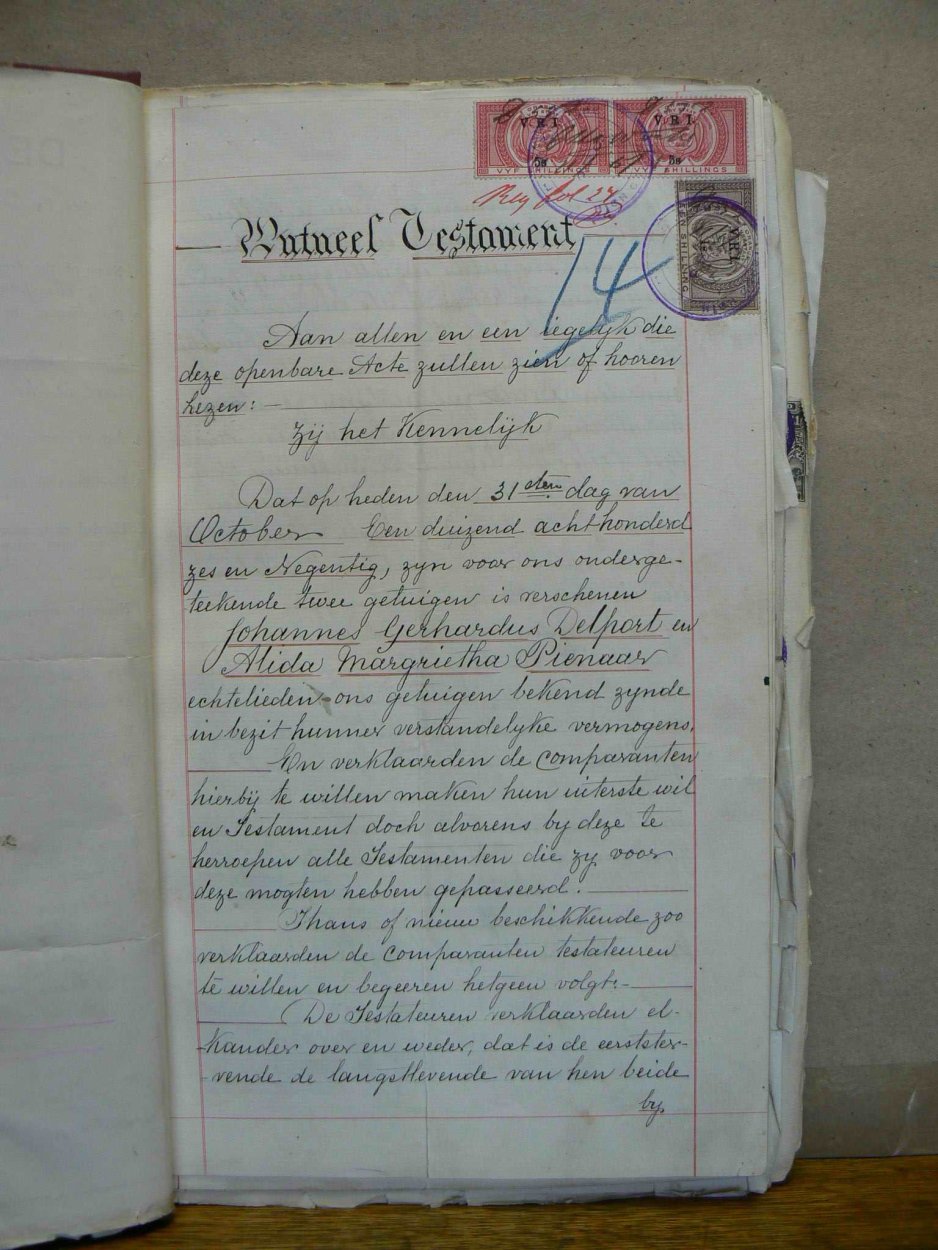 V.R.I. V.R.I.
5s 5s
VYF SHILLINGS VYF SHILLINGS
Reg fol 27
V.R.I.
Mutueel Testament
14
Aan allen en een iegelijk die
deze openbare Acte zullen zien of hooren
Lezen:-
Zij het Kennelijk
Dat op heden den 31sten dag van
October Een duizend acht honderd
zes en Negentig, zyn voor ons onderge-
teekende twee getuigen is verschenen
Johannes Gerhardus Delport en
Alida Margrietha Pienaar
echtelieden ons getuigen bekend zynde
in bezit hunner verstandelyke vermogens.
En verklaarden de comparanten
hierbij te willen maken hun uiterste wil
en Testament doch alvorens by deze te
herroepen alle Testamenten die zy voor
deze mogten hebben gepasseerd.
Thans of nieuw beschikkende zoo
verklaarden de comparanten testateuren
te willen en begeeren hetgeen volgt:-
De Testateuren verklaarden el-
kander over en weder, dat is de eerstster-
vende de langstlevende van hen beide
by